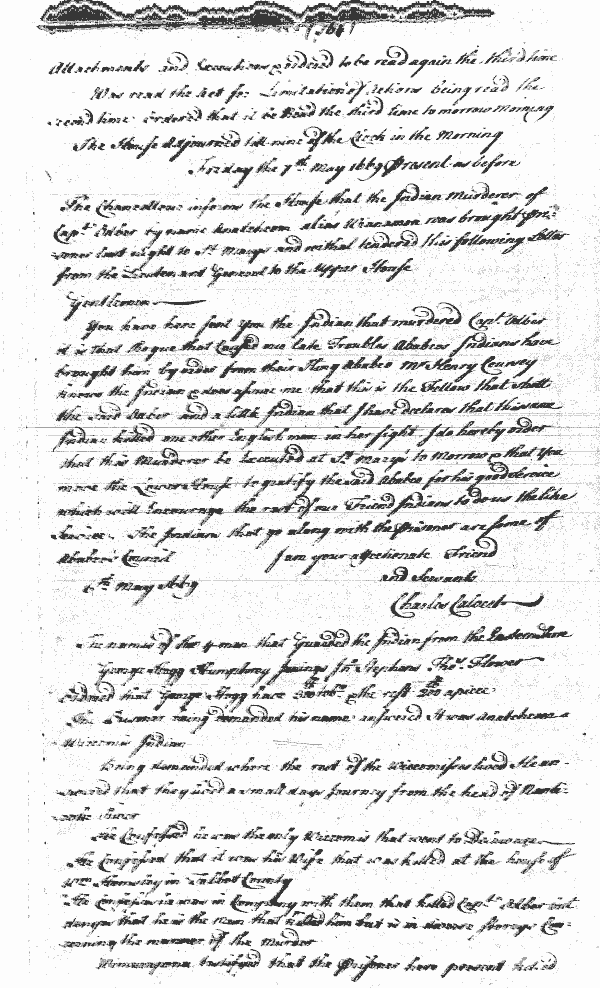 (164)
Attachments and Executions ordered to be read again the third time
Was read the Act for Limitation of Actions being read the
second time ordered that it be Read the third time to morrow Morning
The House Adjourned till nine of the Clock in the Morning
Friday the 7th May 1669 Present as before
The Chancellour informs the House that the Indian Murderer of
Capt Odber by name alias Wianamon was brought Pri-
soner last night to St Marys and withal tendered this following Letter
from the Lieutenant Generall to the Upper House
Gentlemen
You have here sent You the Indian that murdered Capt Odber
it is that Rogue that Caused our late Troubles Ababco Indians have
brought him by order from their King Ababco Mr Henry Coursey
knows the Indian & does assure me that this is the Fellow that shott
the said Odber and a little Indian that I have declares that this same
Indian killed one other English man in her sight I do hereby order
that this Murderer be Executed at St Marys to Morrow & that You
move the Lower House to gratify the said Ababco for his good Service
which will Encourage the rest of our Friend Indians to do us the like
Service The Indians that go along with the Prisoner are some of
Ababco's Council I am your affectionate Friend
May 1669 and Servant
Charles Calvert
The names of the 4 men that Guarded the Indian from the Eastern Shore
George Hogg Humphrey Jnº Stephens Thoˢ Flower
Ordered that George Hogg have & the rest 200 apiece
The Prisoner being demanded his name answered It was a
Indian
Being demanded where the rest of the lived He an-
swered that they lived a small days Journey from the head of
River
He Confessed he was the only that went to Delaware
He Confessed that it was his Wife that was killed at the house of
Wm Hemsley in Talbot County
He Confesses he was in Company with them that killed Capt Odber but
denyes that he is the man that killed him but is in diverse Storys Con-
cerning the manner of the Murder
testifyed that the Prisoner here present